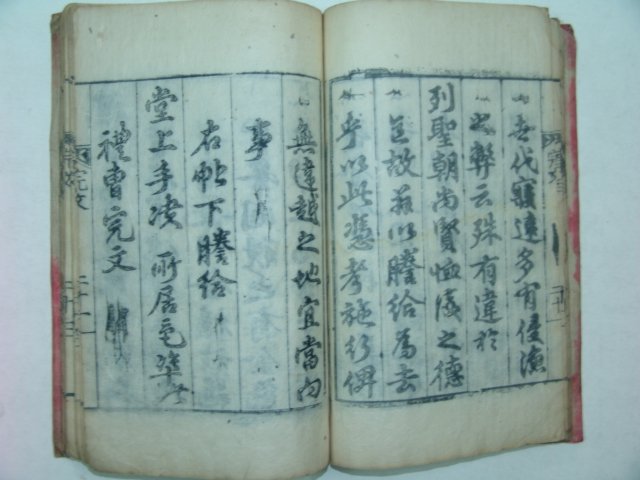 世代寢遠多有侵漁
之弊云殊有違於
列聖朝尙賢恤後之德
故茲以謄給爲去
乎以此憑考施行俾
無違越之地宜當向
事
右帖下謄給
堂上手決 所居邑準此
禮曹完文
完文